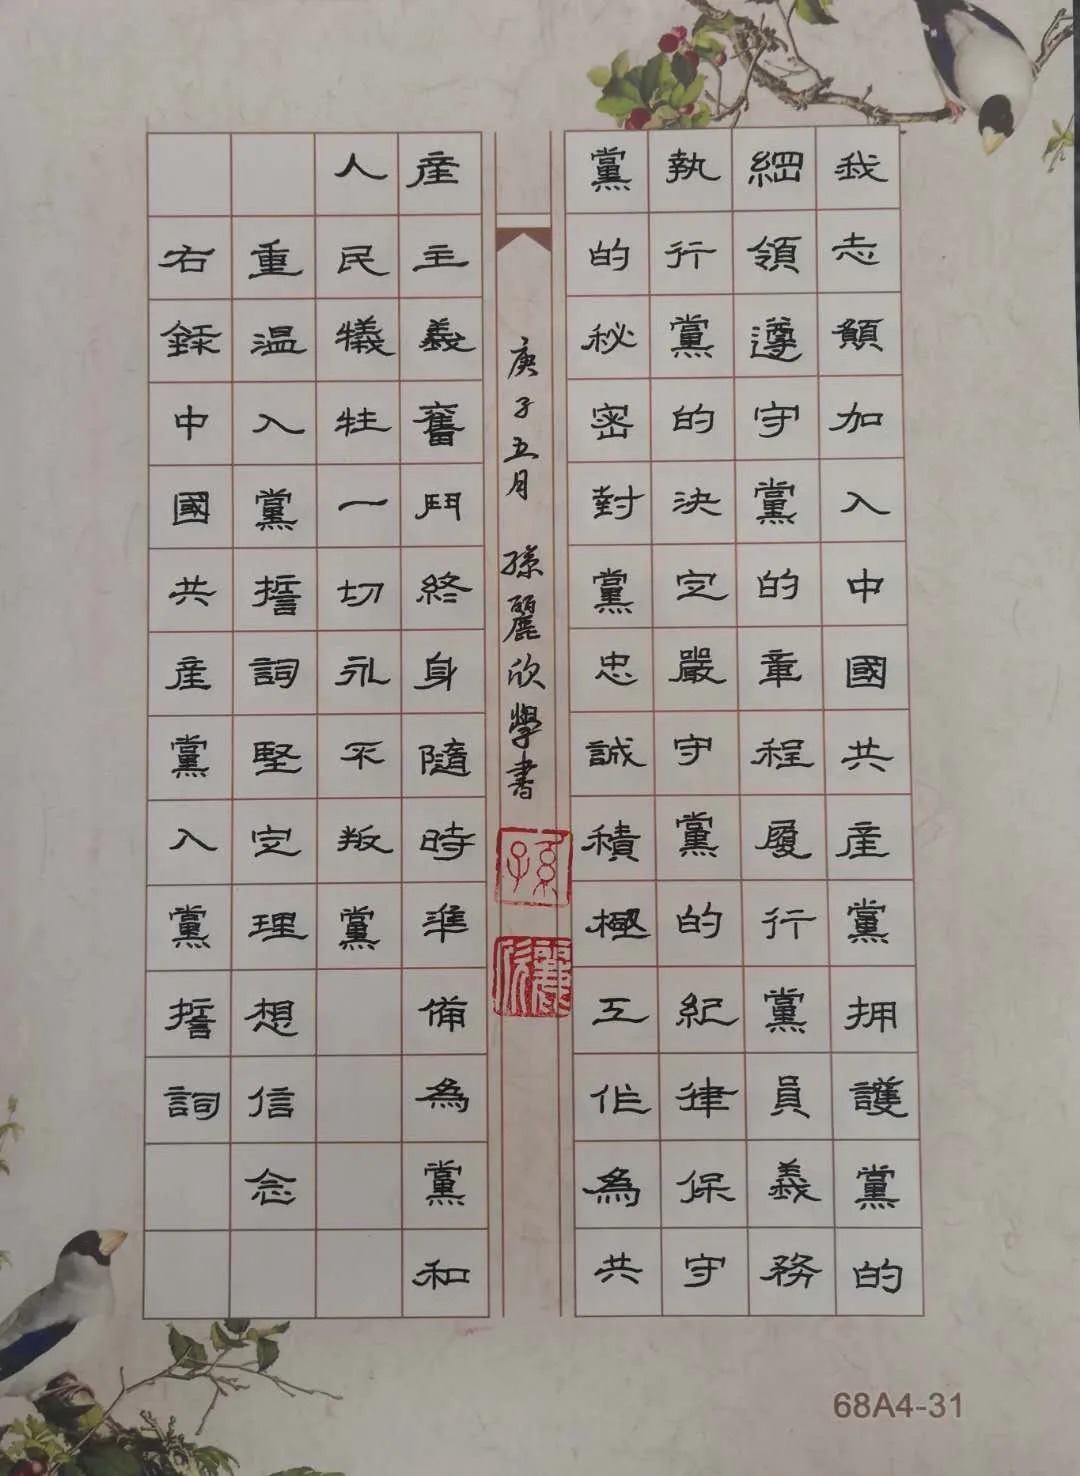 我志願加入中國共産黨拥護黨的
綱領遵守黨的章程履行黨員義務
執行黨的決定嚴守黨的紀律保守
黨的秘密對黨忠誠積極工作為共
産主義奮鬥終身隨時準備為黨和
人民犧牲一切永不叛黨
重温入黨誓詞堅定理想信念
右錄中國共産黨入黨誓詞
庚子五月 孫麗欣學書
孫
麗欣
68A4-31